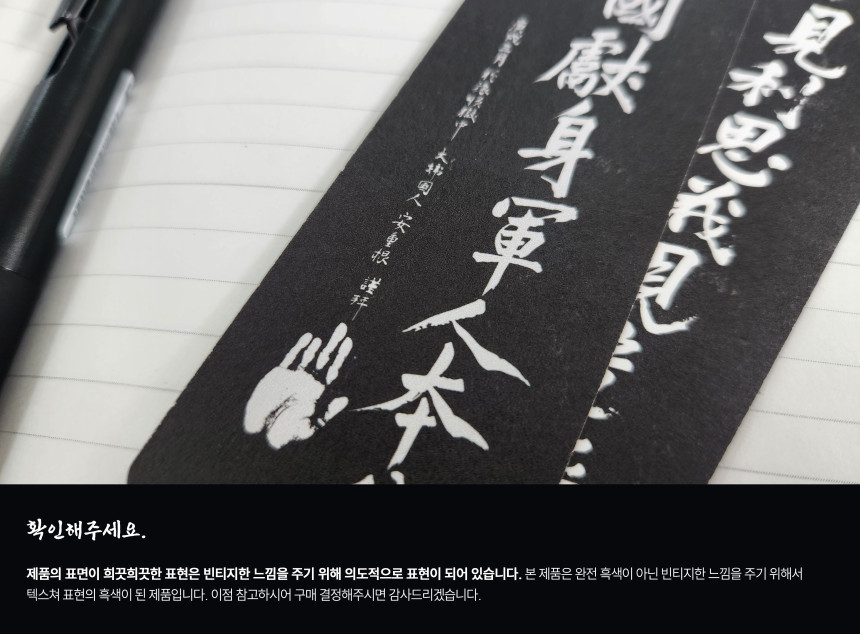 見利思義見
國獻身軍人本
大韓國人 安重根 謹拜
확인해주세요.
제품의 표면이 희끗희끗한 표현은 빈티지한 느낌을 주기 위해 의도적으로 표현이 되어 있습니다. 본 제품은 완전 흑색이 아닌 빈티지한 느낌을 주기 위해서
텍스쳐 표현의 흑색이 된 제품입니다. 이점 참고하시어 구매 결정해주시면 감사드리겠습니다.